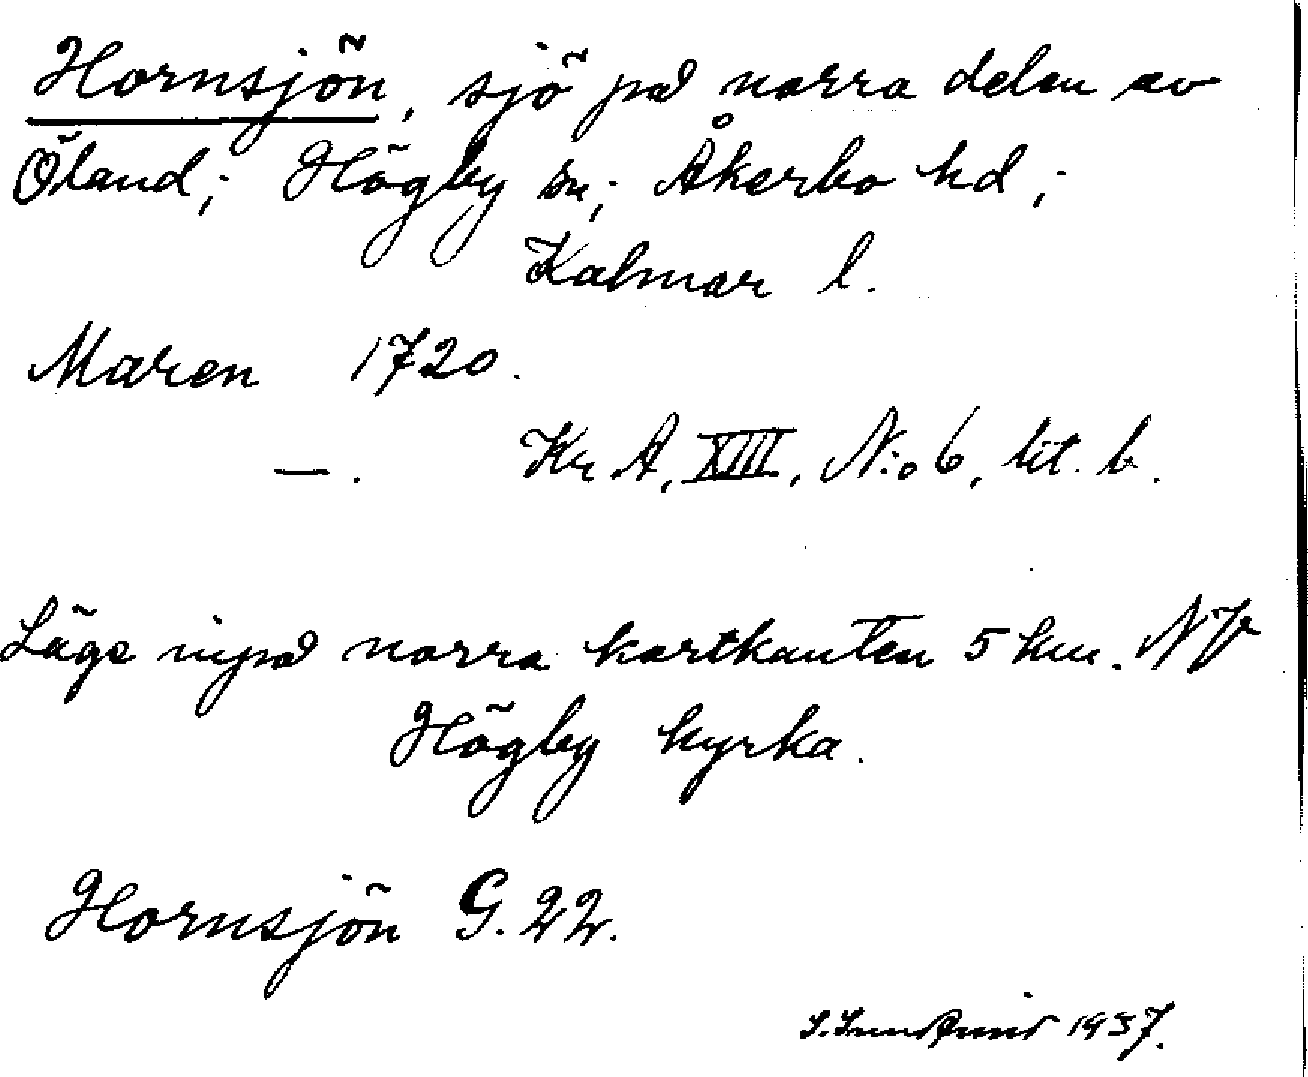 Hornsjön, sjö på norra delen av
Öland; Högby sn; Åkerbo hd;
Kalmar l.
Maren 1720.
—. Kr A, XIII, N:o 6, lit. b.
Läge invid norra kartkanten 5 km. NV
Högby kyrka.
Hornsjön G. 22.
1937.